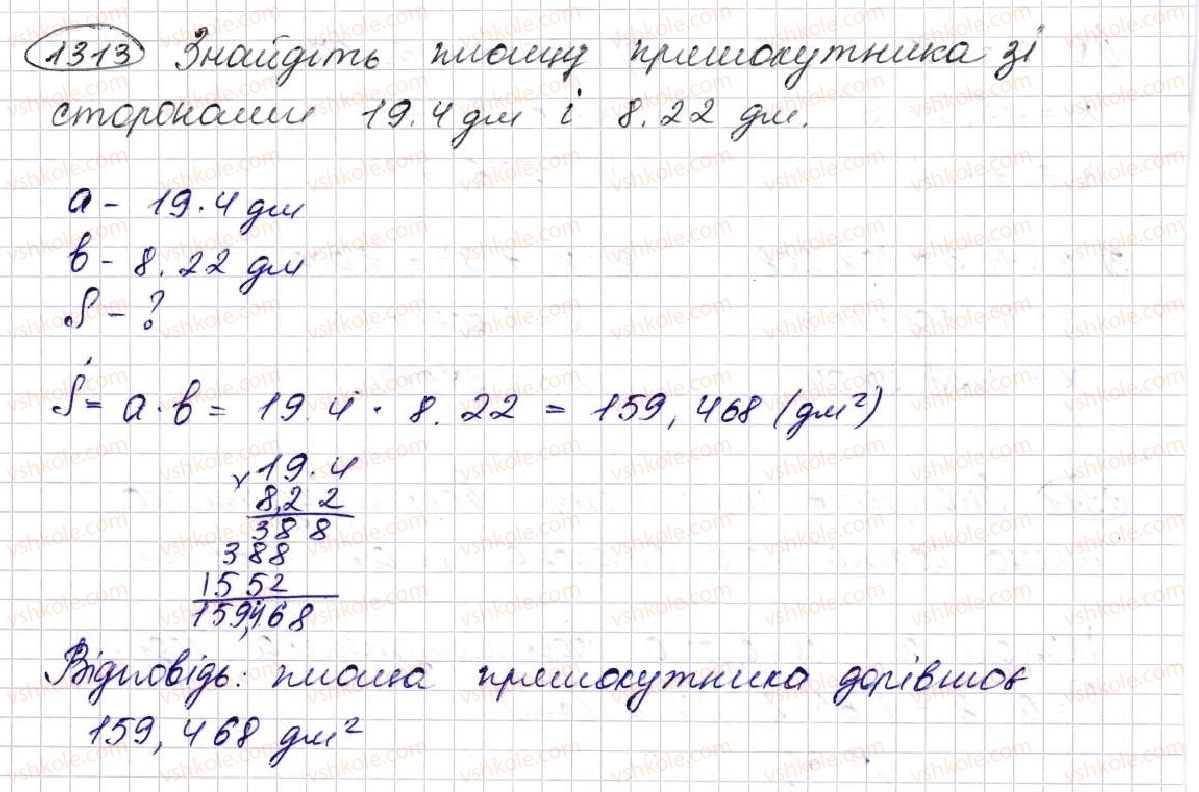 1313 Знайдіть площу прямокутника зі
сторонами 19.4 дм і 8.22 дм.
a - 19.4 дм
b - 8.22 дм
S - ?
S = a · b = 19.4 · 8.22 = 159,468 (дм²)
× 19.4
8,22
388
388
1552
159,468
Відповідь: площа прямокутника дорівнює
159,468 дм²